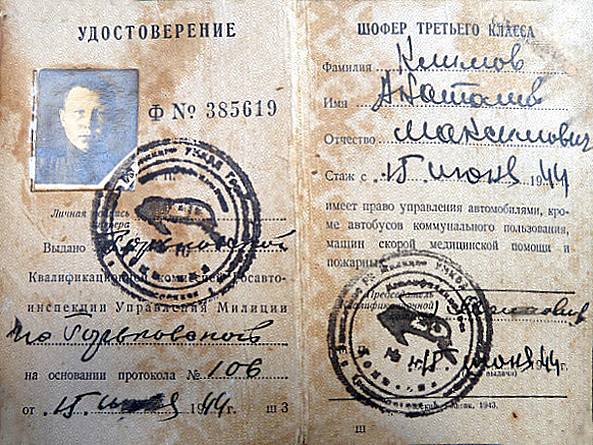 УДОСТОВЕРЕНИЕ
Ф № 385619
Личная подпись
шофера
Выдано Горьковской
Квалификационной комиссией Госавто-
инспекции Управления Милиции
по Горьковской
на основании протокола № 106
от 15 июня 1944 г. ш 3
ШОФЕР ТРЕТЬЕГО КЛАССА
Фамилия Климов
Имя Анатолий
Отчество Максимович
Стаж с 15 июня 1944
имеет право управления автомобилями, кро-
ме автобусов коммунального пользования,
машин скорой медицинской помощи и
пожарных
Председатель
Квалификационной
15 июня 44
выдачи)
1943.
Ш